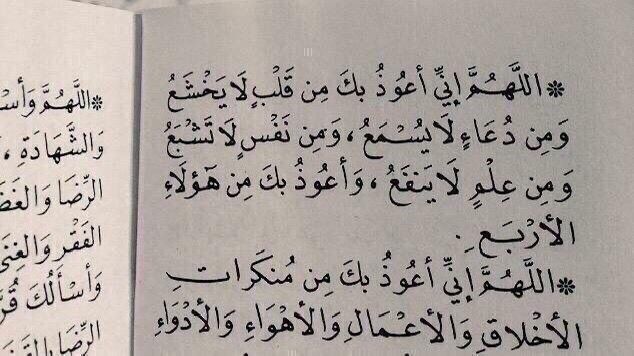 * اللَّهُمَّ إِنِّي أَعُوذُ بِكَ مِن قَلْبٍ لَا يَخْشَعُ
وَمِن دُعَاءٍ لَا يُسْمَعُ، وَمِن نَفْسٍ لَا تَشْبَعُ
وَمِن عِلْمٍ لَا يَنفَعُ، وَأَعُوذُ بِكَ مِن هَؤُلَاءِ
الأَرْبَعِ.
* اللَّهُمَّ إِنِّي أَعُوذُ بِكَ مِن مُنكَرَاتِ
الأَخْلَاقِ وَالأَعْمَالِ وَالأَهْوَاءِ وَالأَدْوَاءِ
* اللَّهُمَّ
وَالشَّهَادَةِ،
الرِّضَا
الفَقْرِ وَالغِنَى
وَأَسْأَلُكَ
الرِّضَا